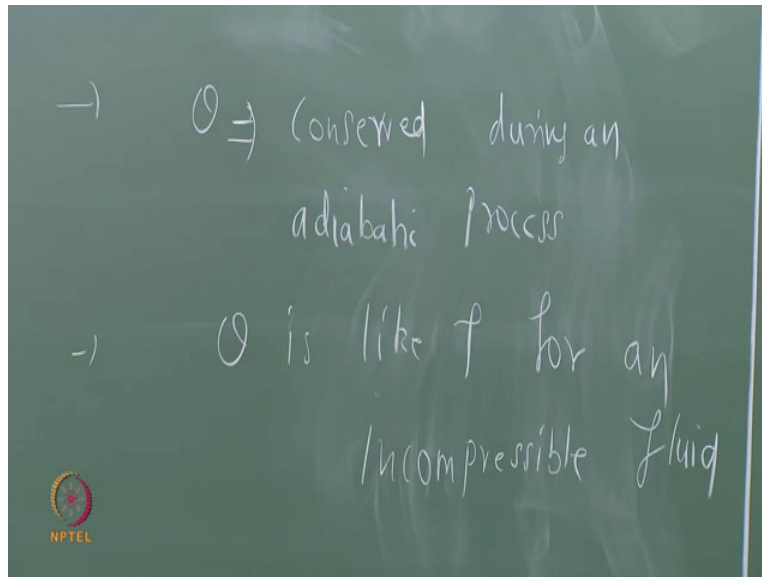 → θ ⇒ Conserved during an
adiabatic Process
→ θ is like T for an
Incompressible fluid
NPTEL